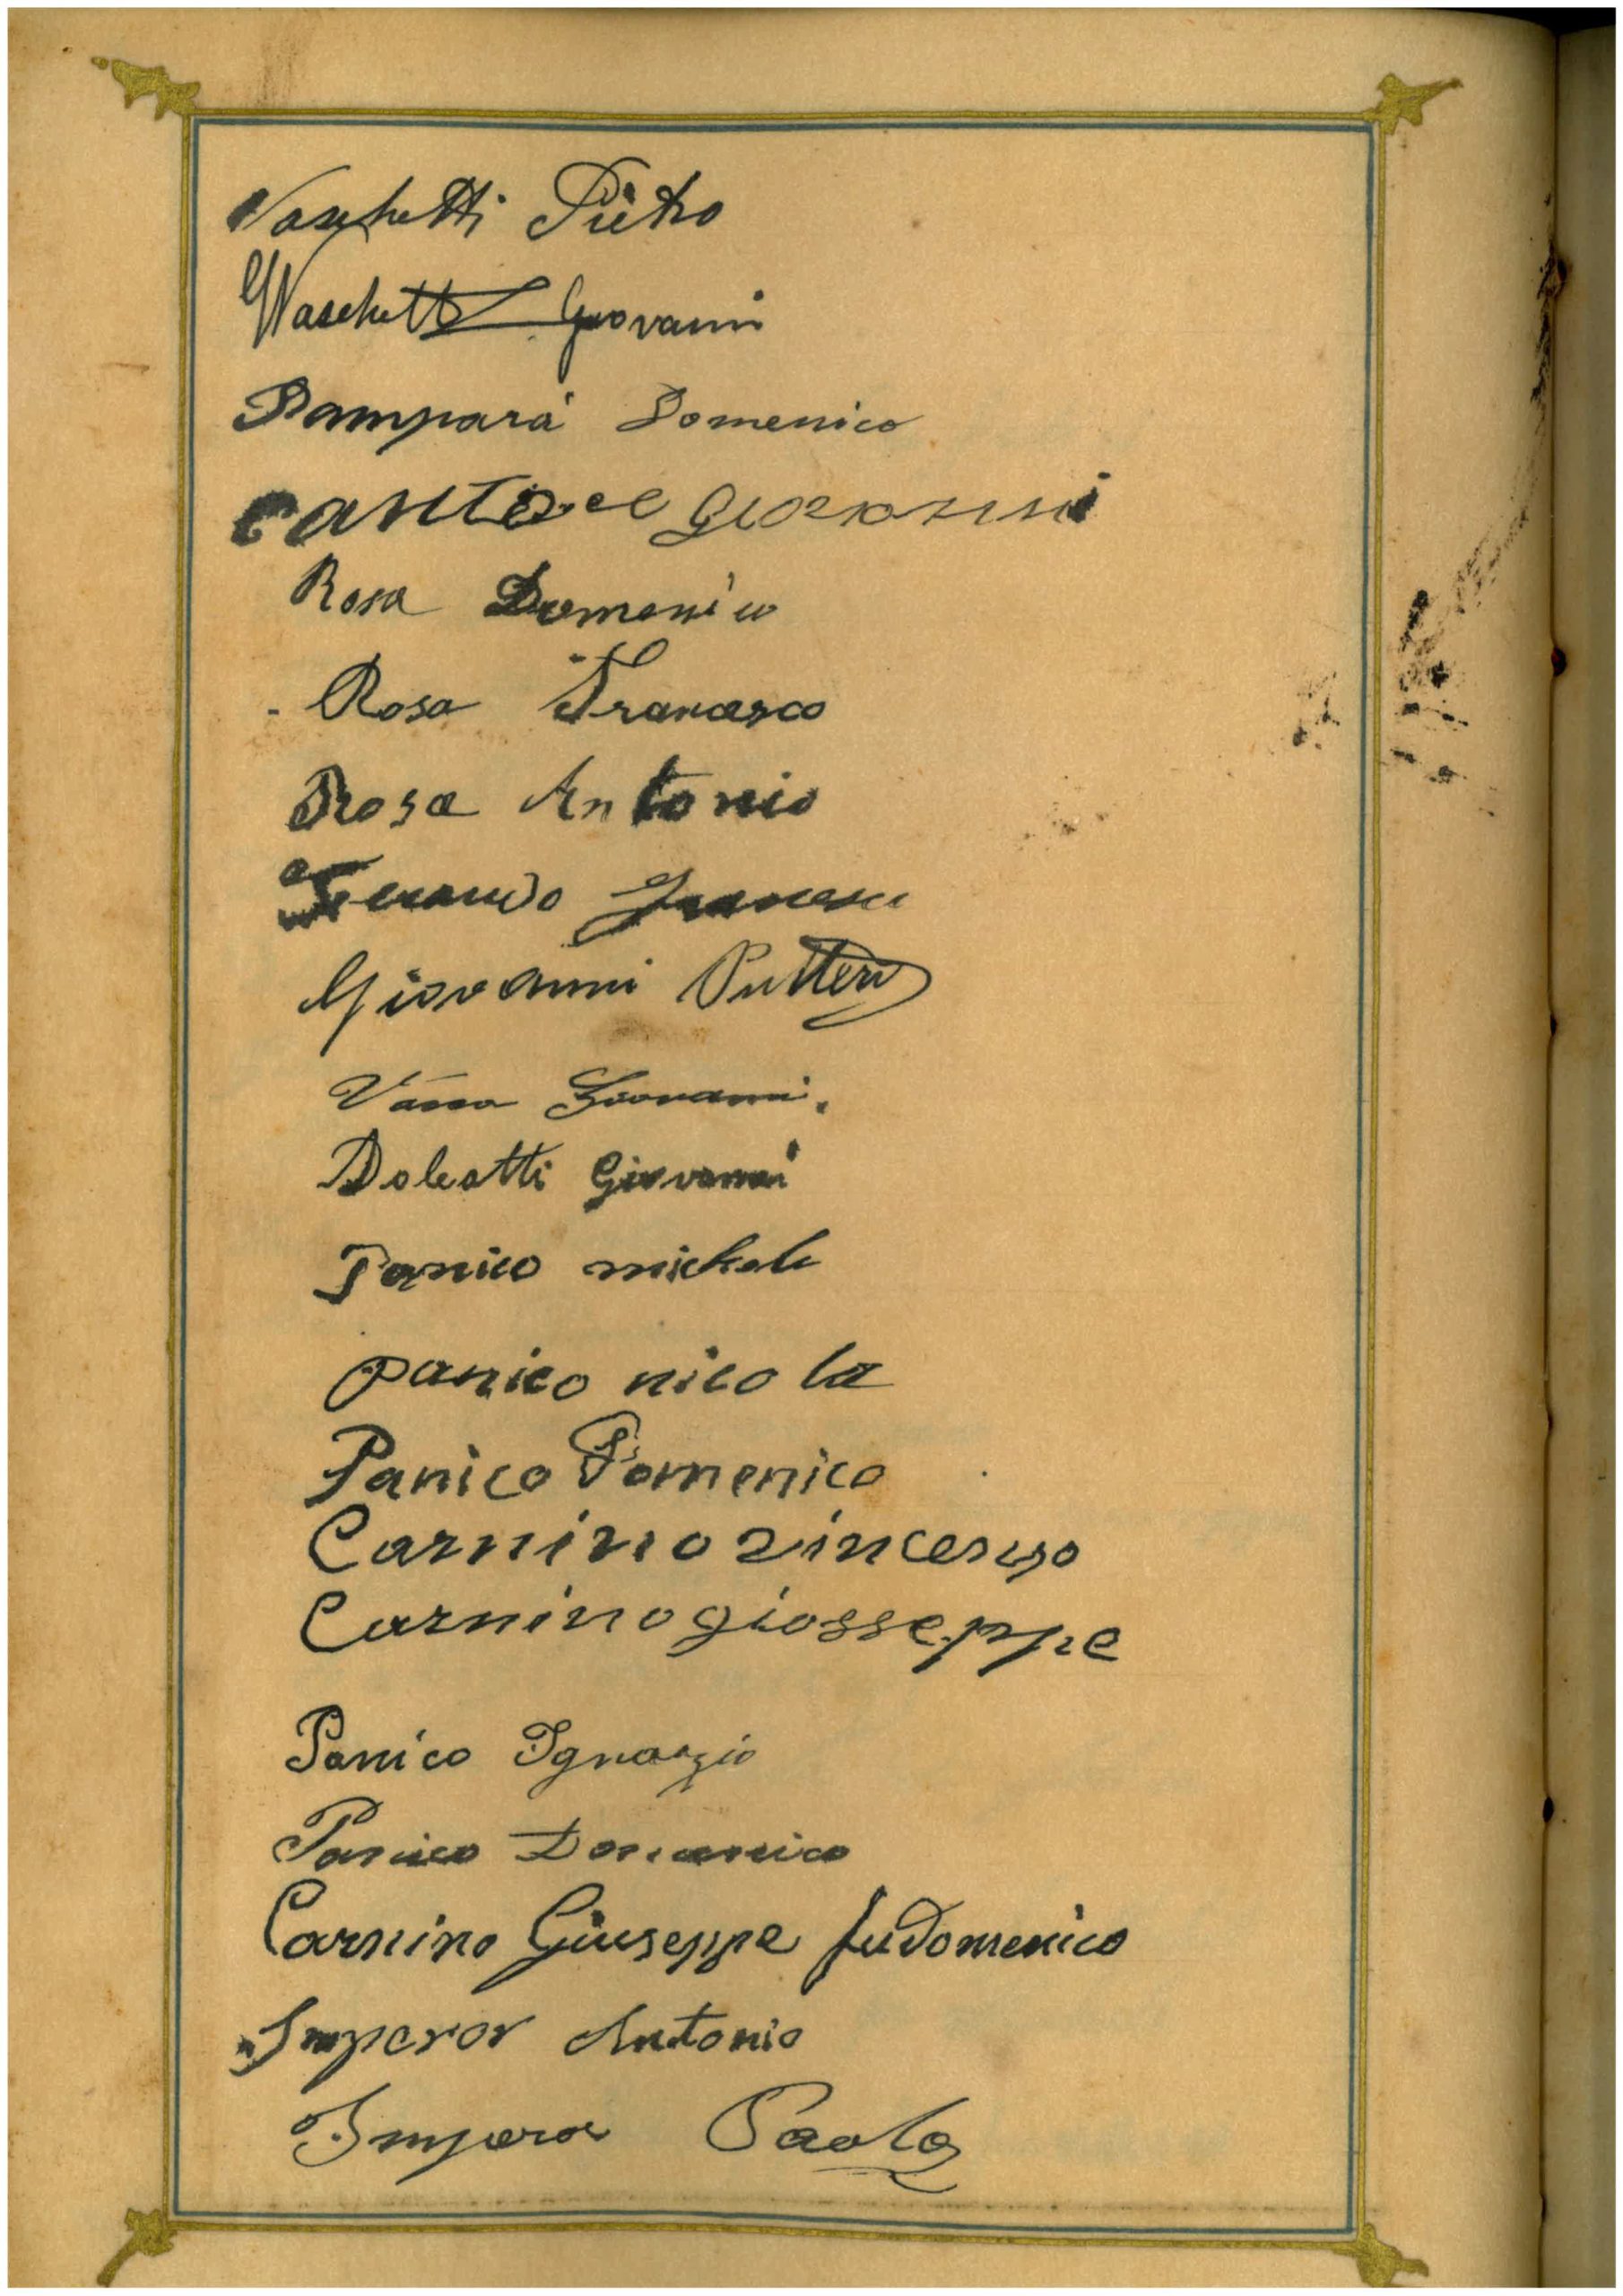 Vaschetti Pietro
Waschetti Giovanni
Pamparà Domenico
cantore giovanni
Rosa Domenico
Rosa Francesco
Rosa Antonio
Giovanni Putteri
Vassa Giovanni.
Doleatti Giovanni
Panico michele
panico nicola
Panico Domenico
Carnino vincenso
Carnino giosseppe
Panico Ignazio
Panico Domenico
Carnino Giuseppe fuDomenico
Imperor Antonio
Imperor Paolo